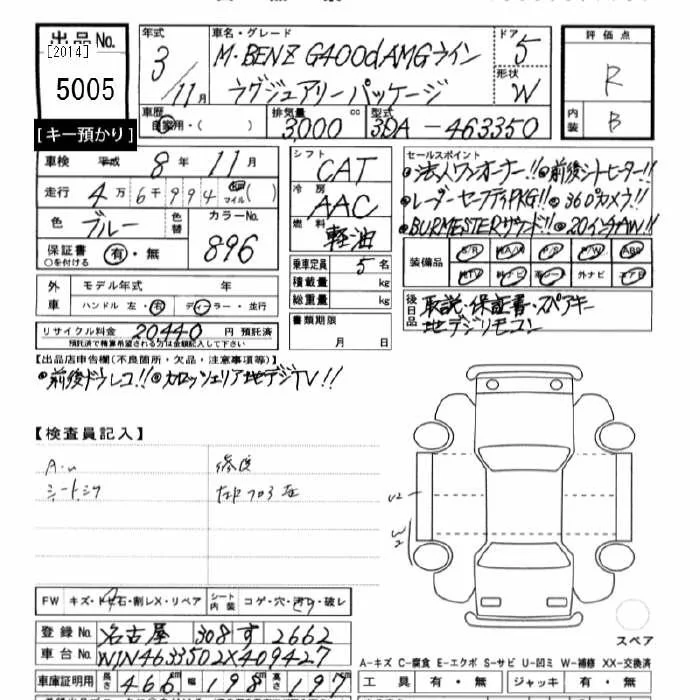 出品No.
[2014]
5005
[キー預かり]
年式
3/11月
車名・グレード
M・BENZ G400dAMGライン
ラグジュアリーパッケージ
ドア
5
形状
W
車歴
自家用・( )
排気量
3,000 cc
型式
3DA-463350
評価点
R
内装
B
車検 平成 8年 11月
走行 4万6千994 km マイル( )
色 ブルー 色替
カラーNo.
896
保証書
○を付ける
有・無
外車
モデル年式 年
ハンドル 左・右
ディーラー・並行
リサイクル料金 20440 円 預託済
預託済で精算希望される方は金額記入して下さい
シフト
CAT
冷房
AAC
燃料
軽油
乗車定員 5名
積載量 kg
総重量 kg
書類期限
月 日
セールスポイント
法人ワンオーナー!! 前後シートヒーター!!
レーダーセーフティPKG!! 360°カメラ!!
BURMESTERサウンド!! 20インチAW!!
装備品
S/R 純A/W P/S P/W ABS
純TV 純ナビ 革シート 外ナビ エアB
後日品
取説・保証書・スペアキー
地デジリモコン
【出品店申告欄(不良箇所・欠品・注意事項等)】
前後ドラレコ!! カロッツェリア地デジTV!!
【検査員記入】
シートシワ
U2
W2
スペア
FW キズ・トビ石・割レX・リペア
シート内装 コゲ・穴・汚り・破レ
登録No. 名古屋 308 す 2662
車台No. W1N4633502X409427
車庫証明用 長さ 466cm 幅 198cm 高さ 197
A-キズ C-腐食 E-エクボ S-サビ U-凹ミ W-補修 XX-交換済
工具 有・無 ジャッキ 有・無